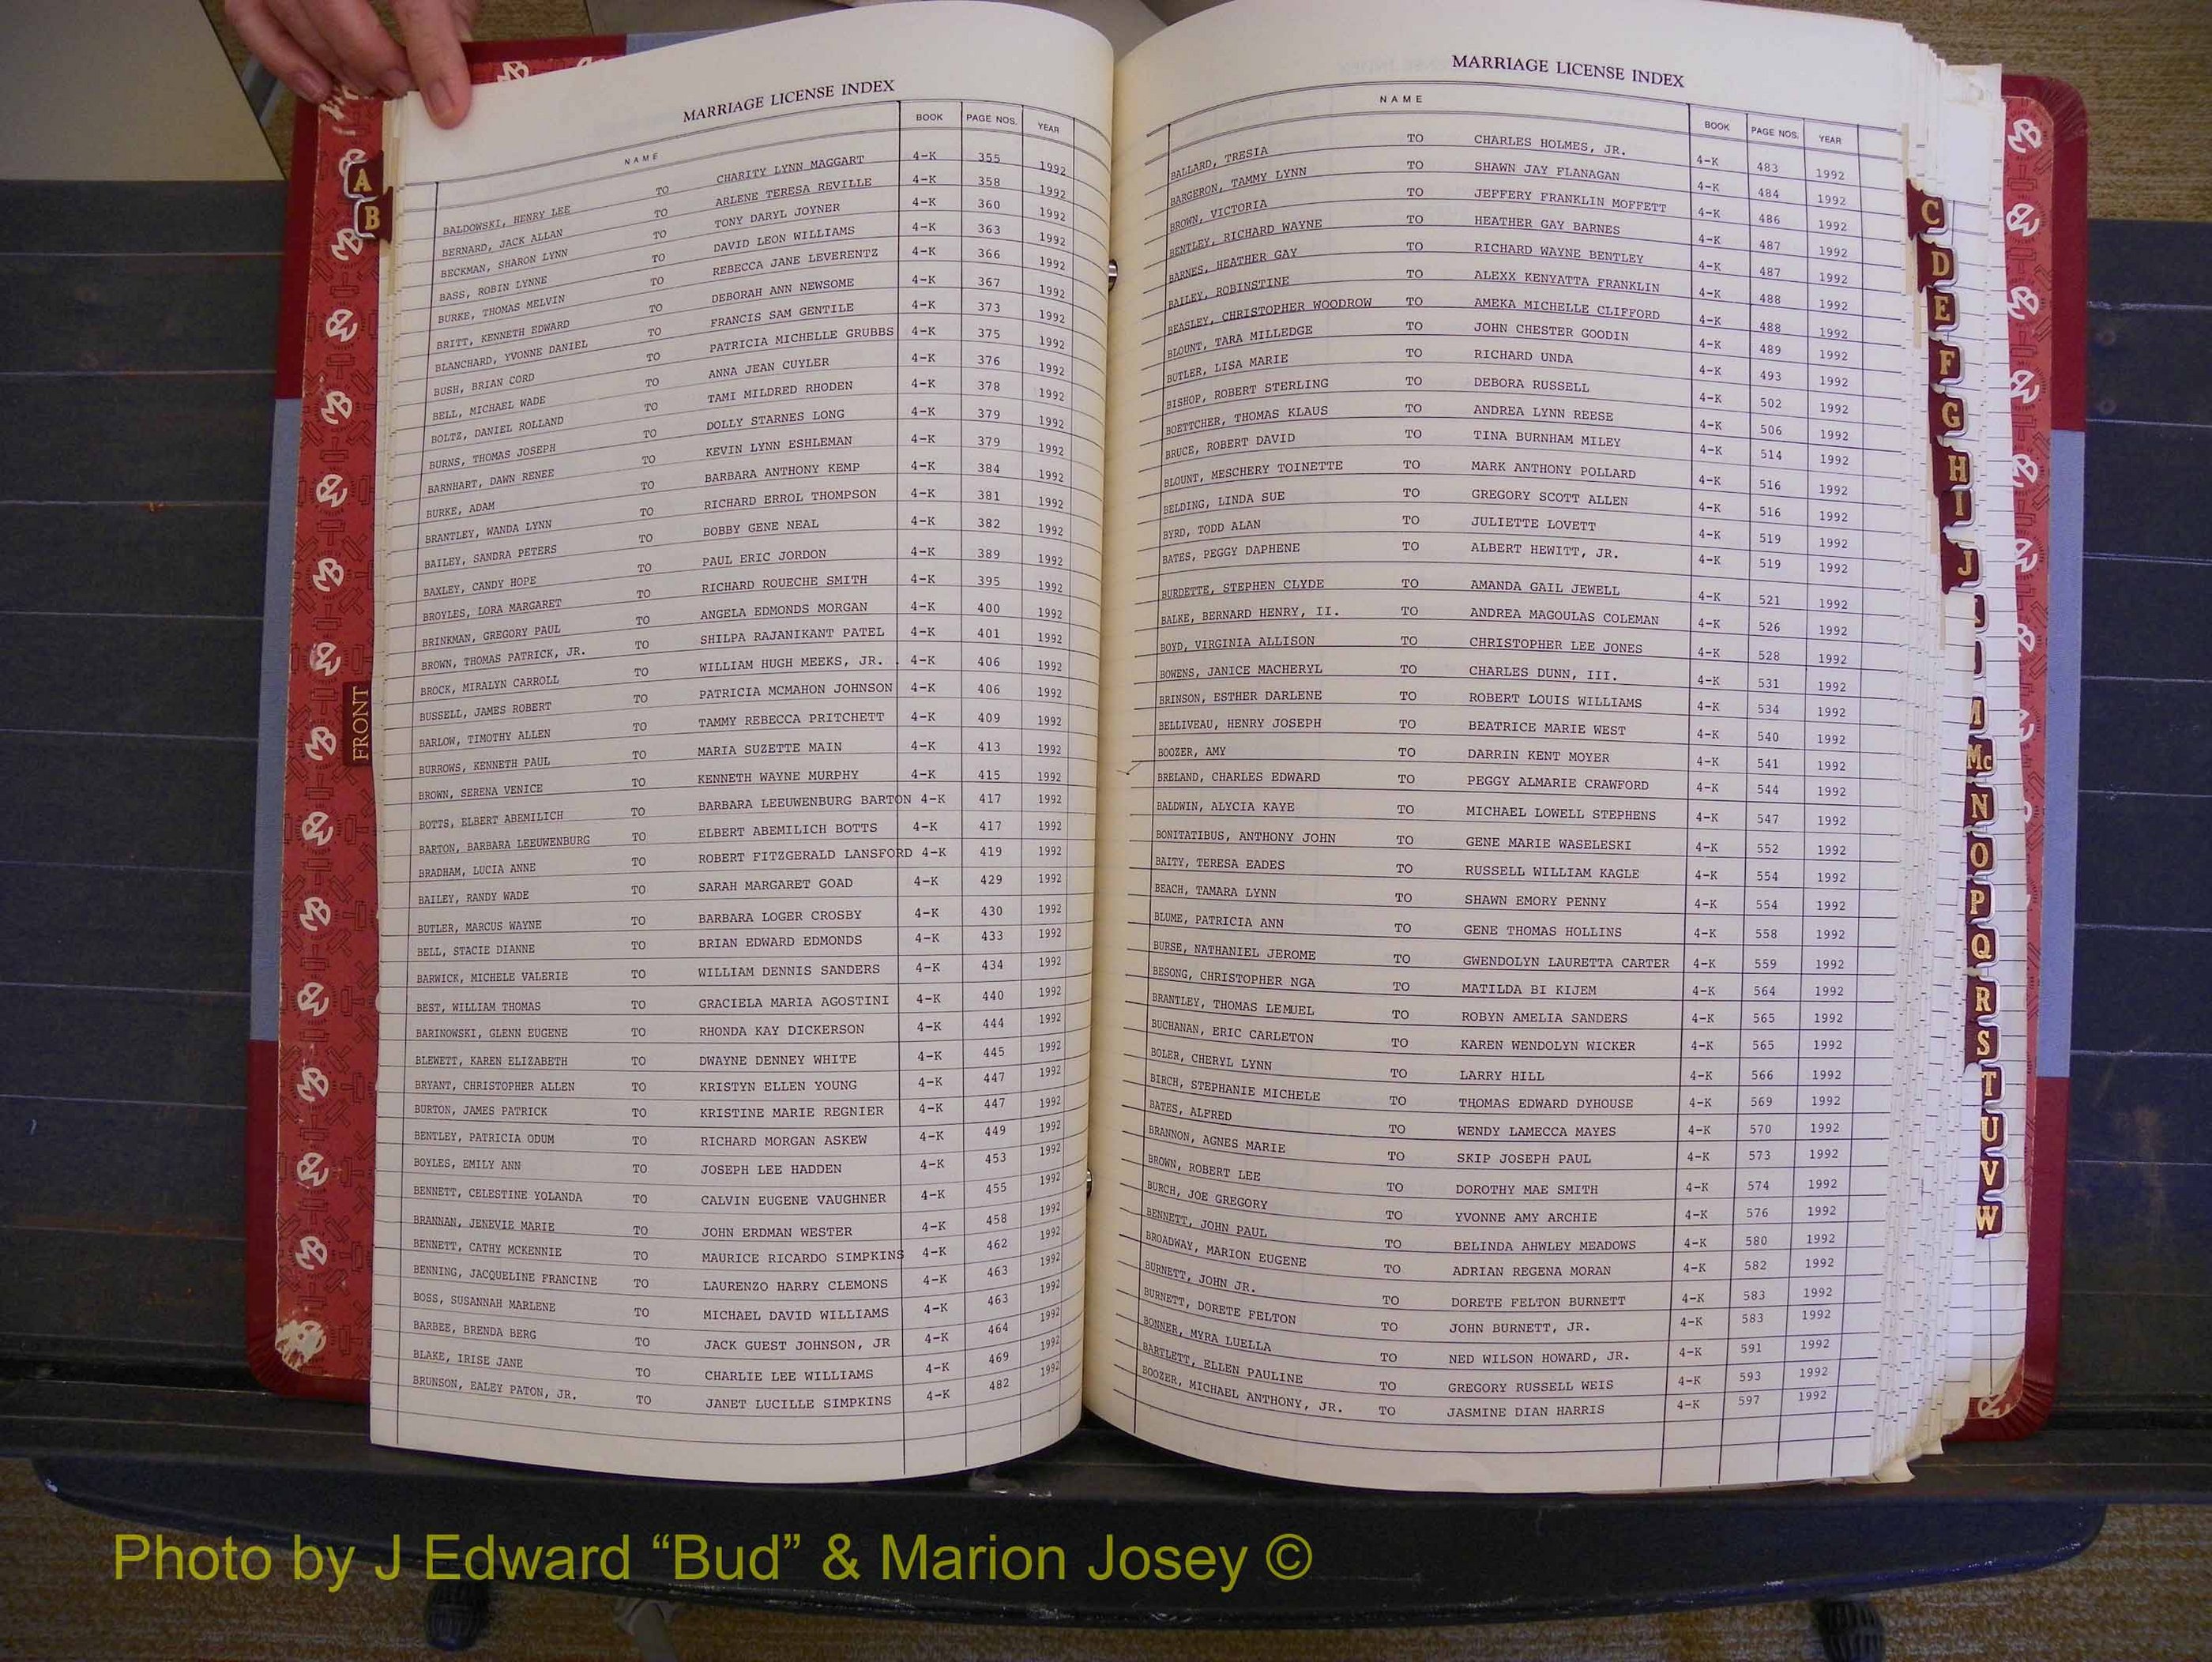 MARRIAGE LICENSE INDEX
NAME BOOK PAGE NOS. YEAR
BALDOWSKI, HENRY LEE TO CHARITY LYNN MAGGART 4-K 355 1992
BERNARD, JACK ALLAN TO ARLENE TERESA REVILLE 4-K 358 1992
BECKMAN, SHARON LYNN TO TONY DARYL JOYNER 4-K 360 1992
BASS, ROBIN LYNNE TO DAVID LEON WILLIAMS 4-K 363 1992
BURKE, THOMAS MELVIN TO REBECCA JANE LEVERENTZ 4-K 366 1992
BRITT, KENNETH EDWARD TO DEBORAH ANN NEWSOME 4-K 367 1992
BLANCHARD, YVONNE DANIEL TO FRANCIS SAM GENTILE 4-K 373 1992
BUSH, BRIAN CORD TO PATRICIA MICHELLE GRUBBS 4-K 375 1992
BELL, MICHAEL WADE TO ANNA JEAN CUYLER 4-K 376 1992
BOLTZ, DANIEL ROLLAND TO TAMI MILDRED RHODEN 4-K 378 1992
BURNS, THOMAS JOSEPH TO DOLLY STARNES LONG 4-K 379 1992
BARNHART, DAWN RENEE TO KEVIN LYNN ESHLEMAN 4-K 379 1992
BURKE, ADAM TO BARBARA ANTHONY KEMP 4-K 384 1992
BRANTLEY, WANDA LYNN TO RICHARD ERROL THOMPSON 4-K 381 1992
BAILEY, SANDRA PETERS TO BOBBY GENE NEAL 4-K 382 1992
BAXLEY, CANDY HOPE TO PAUL ERIC JORDON 4-K 389 1992
BROYLES, LORA MARGARET TO RICHARD ROUECHE SMITH 4-K 395 1992
BRINKMAN, GREGORY PAUL TO ANGELA EDMONDS MORGAN 4-K 400 1992
BROWN, THOMAS PATRICK, JR. TO SHILPA RAJANIKANT PATEL 4-K 401 1992
BROCK, MIRALYN CARROLL TO WILLIAM HUGH MEEKS, JR. 4-K 406 1992
BUSSELL, JAMES ROBERT TO PATRICIA MCMAHON JOHNSON 4-K 406 1992
BARLOW, TIMOTHY ALLEN TO TAMMY REBECCA PRITCHETT 4-K 409 1992
BURROWS, KENNETH PAUL TO MARIA SUZETTE MAIN 4-K 413 1992
BROWN, SERENA VENICE TO KENNETH WAYNE MURPHY 4-K 415 1992
BOTTS, ELBERT ABEMILICH TO BARBARA LEEUWENBURG BARTON 4-K 417 1992
BARTON, BARBARA LEEUWENBURG TO ELBERT ABEMILICH BOTTS 4-K 417 1992
BRADHAM, LUCIA ANNE TO ROBERT FITZGERALD LANSFORD 4-K 419 1992
BAILEY, RANDY WADE TO SARAH MARGARET GOAD 4-K 429 1992
BUTLER, MARCUS WAYNE TO BARBARA LOGER CROSBY 4-K 430 1992
BELL, STACIE DIANNE TO BRIAN EDWARD EDMONDS 4-K 433 1992
BARWICK, MICHELE VALERIE TO WILLIAM DENNIS SANDERS 4-K 434 1992
BEST, WILLIAM THOMAS TO GRACIELA MARIA AGOSTINI 4-K 440 1992
BARINOWSKI, GLENN EUGENE TO RHONDA KAY DICKERSON 4-K 444 1992
BLEWETT, KAREN ELIZABETH TO DWAYNE DENNEY WHITE 4-K 445 1992
BRYANT, CHRISTOPHER ALLEN TO KRISTYN ELLEN YOUNG 4-K 447 1992
BURTON, JAMES PATRICK TO KRISTINE MARIE REGNIER 4-K 447 1992
BENTLEY, PATRICIA ODUM TO RICHARD MORGAN ASKEW 4-K 449 1992
BOYLES, EMILY ANN TO JOSEPH LEE HADDEN 4-K 453 1992
BENNETT, CELESTINE YOLANDA TO CALVIN EUGENE VAUGHNER 4-K 455 1992
BRANNAN, JENEVIE MARIE TO JOHN ERDMAN WESTER 4-K 458 1992
BENNETT, CATHY MCKENNIE TO MAURICE RICARDO SIMPKINS 4-K 462 1992
BENNING, JACQUELINE FRANCINE TO LAURENZO HARRY CLEMONS 4-K 463 1992
BOSS, SUSANNAH MARLENE TO MICHAEL DAVID WILLIAMS 4-K 463 1992
BARBEE, BRENDA BERG TO JACK GUEST JOHNSON, JR 4-K 464 1992
BLAKE, IRISE JANE TO CHARLIE LEE WILLIAMS 4-K 469 1992
BRUNSON, EALEY PATON, JR. TO JANET LUCILLE SIMPKINS 4-K 482 1992
MARRIAGE LICENSE INDEX
NAME BOOK PAGE NOS. YEAR
BALLARD, TRESIA TO CHARLES HOLMES, JR. 4-K 483 1992
BARGERON, TAMMY LYNN TO SHAWN JAY FLANAGAN 4-K 484 1992
BROWN, VICTORIA TO JEFFERY FRANKLIN MOFFETT 4-K 486 1992
BENTLEY, RICHARD WAYNE TO HEATHER GAY BARNES 4-K 487 1992
BARNES, HEATHER GAY TO RICHARD WAYNE BENTLEY 4-K 487 1992
BAILEY, ROBINSTINE TO ALEXX KENYATTA FRANKLIN 4-K 488 1992
BEASLEY, CHRISTOPHER WOODROW TO AMEKA MICHELLE CLIFFORD 4-K 488 1992
BLOUNT, TARA MILLEDGE TO JOHN CHESTER GOODIN 4-K 489 1992
BUTLER, LISA MARIE TO RICHARD UNDA 4-K 493 1992
BISHOP, ROBERT STERLING TO DEBORA RUSSELL 4-K 502 1992
BOETTCHER, THOMAS KLAUS TO ANDREA LYNN REESE 4-K 506 1992
BRUCE, ROBERT DAVID TO TINA BURNHAM MILEY 4-K 514 1992
BLOUNT, MESCHERY TOINETTE TO MARK ANTHONY POLLARD 4-K 516 1992
BELDING, LINDA SUE TO GREGORY SCOTT ALLEN 4-K 516 1992
BYRD, TODD ALAN TO JULIETTE LOVETT 4-K 519 1992
BATES, PEGGY DAPHENE TO ALBERT HEWITT, JR. 4-K 519 1992
BURDETTE, STEPHEN CLYDE TO AMANDA GAIL JEWELL 4-K 521 1992
BALKE, BERNARD HENRY, II. TO ANDREA MAGOULAS COLEMAN 4-K 526 1992
BOYD, VIRGINIA ALLISON TO CHRISTOPHER LEE JONES 4-K 528 1992
BOWENS, JANICE MACHERYL TO CHARLES DUNN, III. 4-K 531 1992
BRINSON, ESTHER DARLENE TO ROBERT LOUIS WILLIAMS 4-K 534 1992
BELLIVEAU, HENRY JOSEPH TO BEATRICE MARIE WEST 4-K 540 1992
BOOZER, AMY TO DARRIN KENT MOYER 4-K 541 1992
BRELAND, CHARLES EDWARD TO PEGGY ALMARIE CRAWFORD 4-K 544 1992
BALDWIN, ALYCIA KAYE TO MICHAEL LOWELL STEPHENS 4-K 547 1992
BONITATIBUS, ANTHONY JOHN TO GENE MARIE WASELESKI 4-K 552 1992
BAITY, TERESA EADES TO RUSSELL WILLIAM KAGLE 4-K 554 1992
BEACH, TAMARA LYNN TO SHAWN EMORY PENNY 4-K 554 1992
BLUME, PATRICIA ANN TO GENE THOMAS HOLLINS 4-K 558 1992
BURSE, NATHANIEL JEROME TO GWENDOLYN LAURETTA CARTER 4-K 559 1992
BESONG, CHRISTOPHER NGA TO MATILDA BI KIJEM 4-K 564 1992
BRANTLEY, THOMAS LEMUEL TO ROBYN AMELIA SANDERS 4-K 565 1992
BUCHANAN, ERIC CARLETON TO KAREN WENDOLYN WICKER 4-K 565 1992
BOLER, CHERYL LYNN TO LARRY HILL 4-K 566 1992
BIRCH, STEPHANIE MICHELE TO THOMAS EDWARD DYHOUSE 4-K 569 1992
BATES, ALFRED TO WENDY LAMECCA MAYES 4-K 570 1992
BRANNON, AGNES MARIE TO SKIP JOSEPH PAUL 4-K 573 1992
BROWN, ROBERT LEE TO DOROTHY MAE SMITH 4-K 574 1992
BURCH, JOE GREGORY TO YVONNE AMY ARCHIE 4-K 576 1992
BENNETT, JOHN PAUL TO BELINDA AHWLEY MEADOWS 4-K 580 1992
BROADWAY, MARION EUGENE TO ADRIAN REGENA MORAN 4-K 582 1992
BURNETT, JOHN JR. TO DORETE FELTON BURNETT 4-K 583 1992
BURNETT, DORETE FELTON TO JOHN BURNETT, JR. 4-K 583 1992
BONNER, MYRA LUELLA TO NED WILSON HOWARD, JR. 4-K 591 1992
BARTLETT, ELLEN PAULINE TO GREGORY RUSSELL WEIS 4-K 593 1992
BOOZER, MICHAEL ANTHONY, JR. TO JASMINE DIAN HARRIS 4-K 597 1992
A
B
FRONT
C
D
E
F
G
H
I
J
M
Mc
N
O
P
Q
R
S
T
U
V
W
Photo by J Edward “Bud” & Marion Josey ©